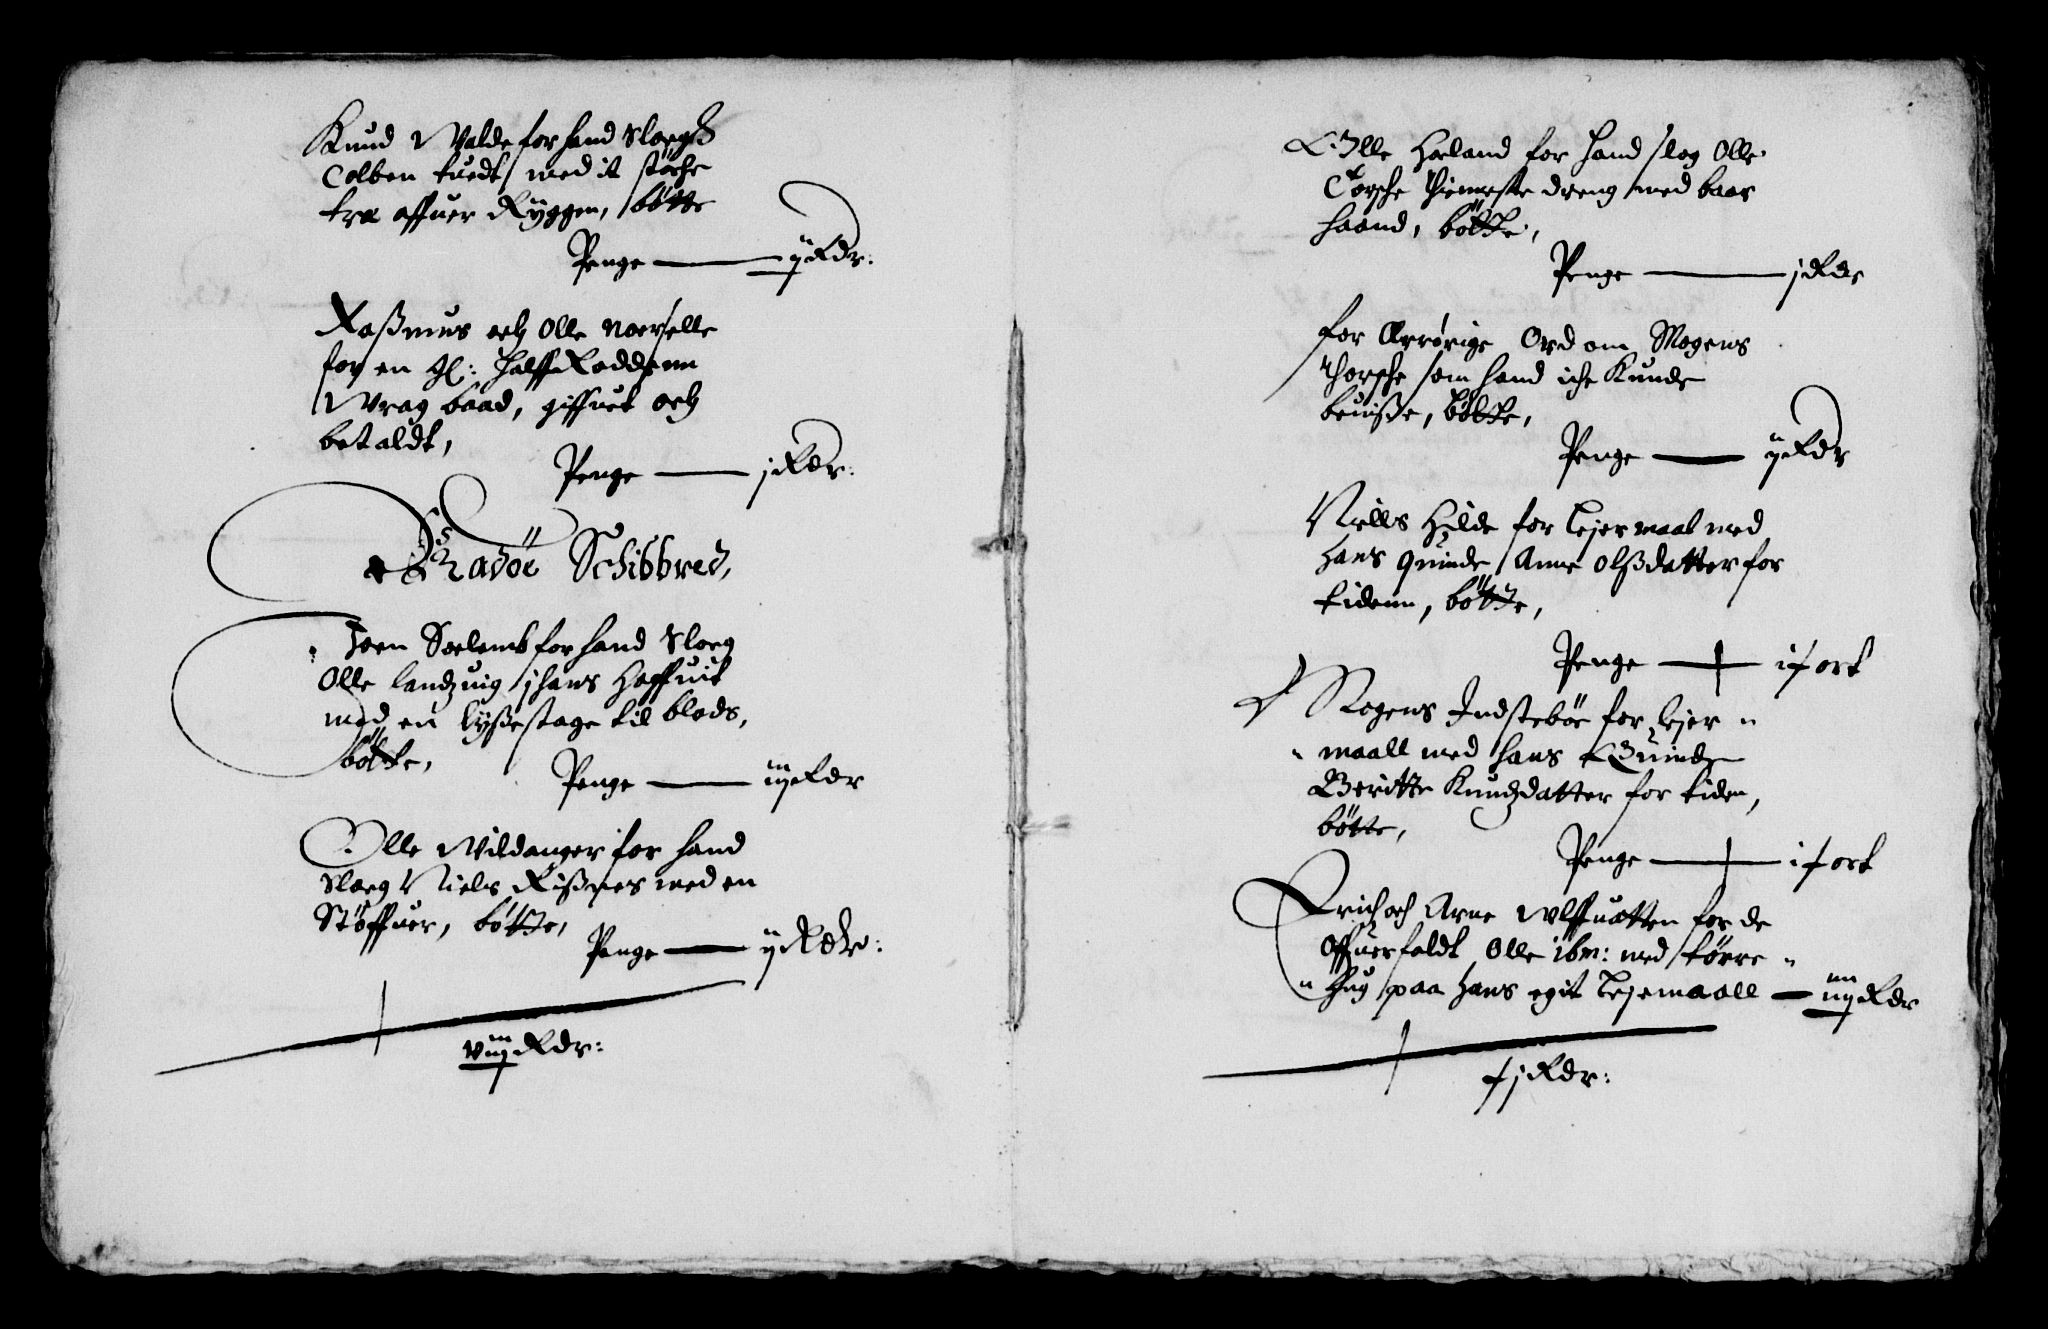 Knud Walde for hand Sloegh
Colben tuedt, med it støche
træ offuer Ryggen, bøtte
Penge — ij Rdr:
Rasßmus och Olle Noerselle
for en gl: halff Raddenn
Wrag baad, giffuet och
betaldt,
Penge — j Rdr:
Radöe Schibbred,
Joen Soelemb for hand Sloeg
Olle Landzuig j hans Hoffuit
med en lyßestage til blods,
bötte,
Penge — iij Rdr
Olle Wildanger for hand
Sloeg Niels Rißnes med en
Støffuer, bötte,
Penge — ij Rdr:
viij Rdr:
Olle Hæland for hand slog Olle
Torsche thienneste dreng med baar
haand, bötte,
Penge — j Rdr
for Ærrørige Ord om Mogens
Thorsche som hand iche kunde
beuisße, bötte,
Penge — ij Rdr
Niells Hilde for Lejermaal med
hans quinde Anne Olßdatter for
tidenn, bötte,
Penge — i ½ ort
Mogens Indstebøe for Lejer
maall med hans Quinde
Beritte Knudzdatter for tiden,
bötte,
Penge — i ½ ort
Erich och Arne Wlffuatten for de
Offuerfaldt Olle ibm: med tørre
Hug paa hans egit Lejemaall — iiij Rdr
xj Rdr: